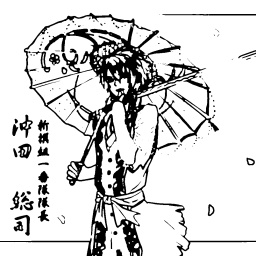 新撰組一番隊隊長
沖田
総司